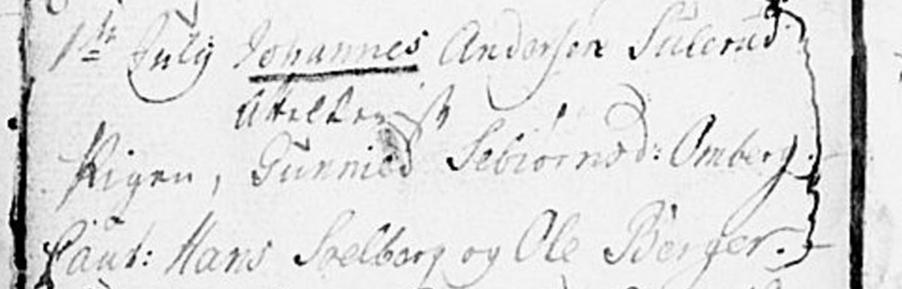 1ste July Johannes Andersen Sulerud
Pigen, Gunnild Sebiørnsd: Omberg.
Caut: Hans Soelberg og Ole Berger.